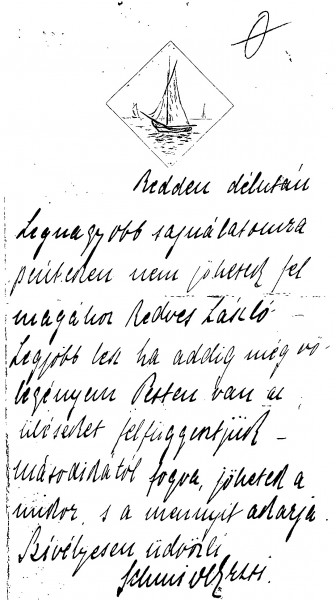 Kedden délután
Legnagyobb sajnálatomra
pénteken nem jöhetek fel
magához Kedves László –
Legjobb lesz ha addig míg vő-
legényem Pesten van az
üléseket felfüggesztjük –
másodikától fogva, jöhetek a
mikor, s a mennyit akarja.
Szívélyesen üdvözli